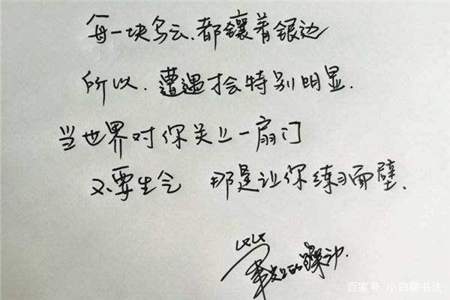 每一块乌云.都镶着银边
所以.遭遇才会特别明显.
当世界对你关上一扇门
不要生气 那是让你练习面壁.
百家号